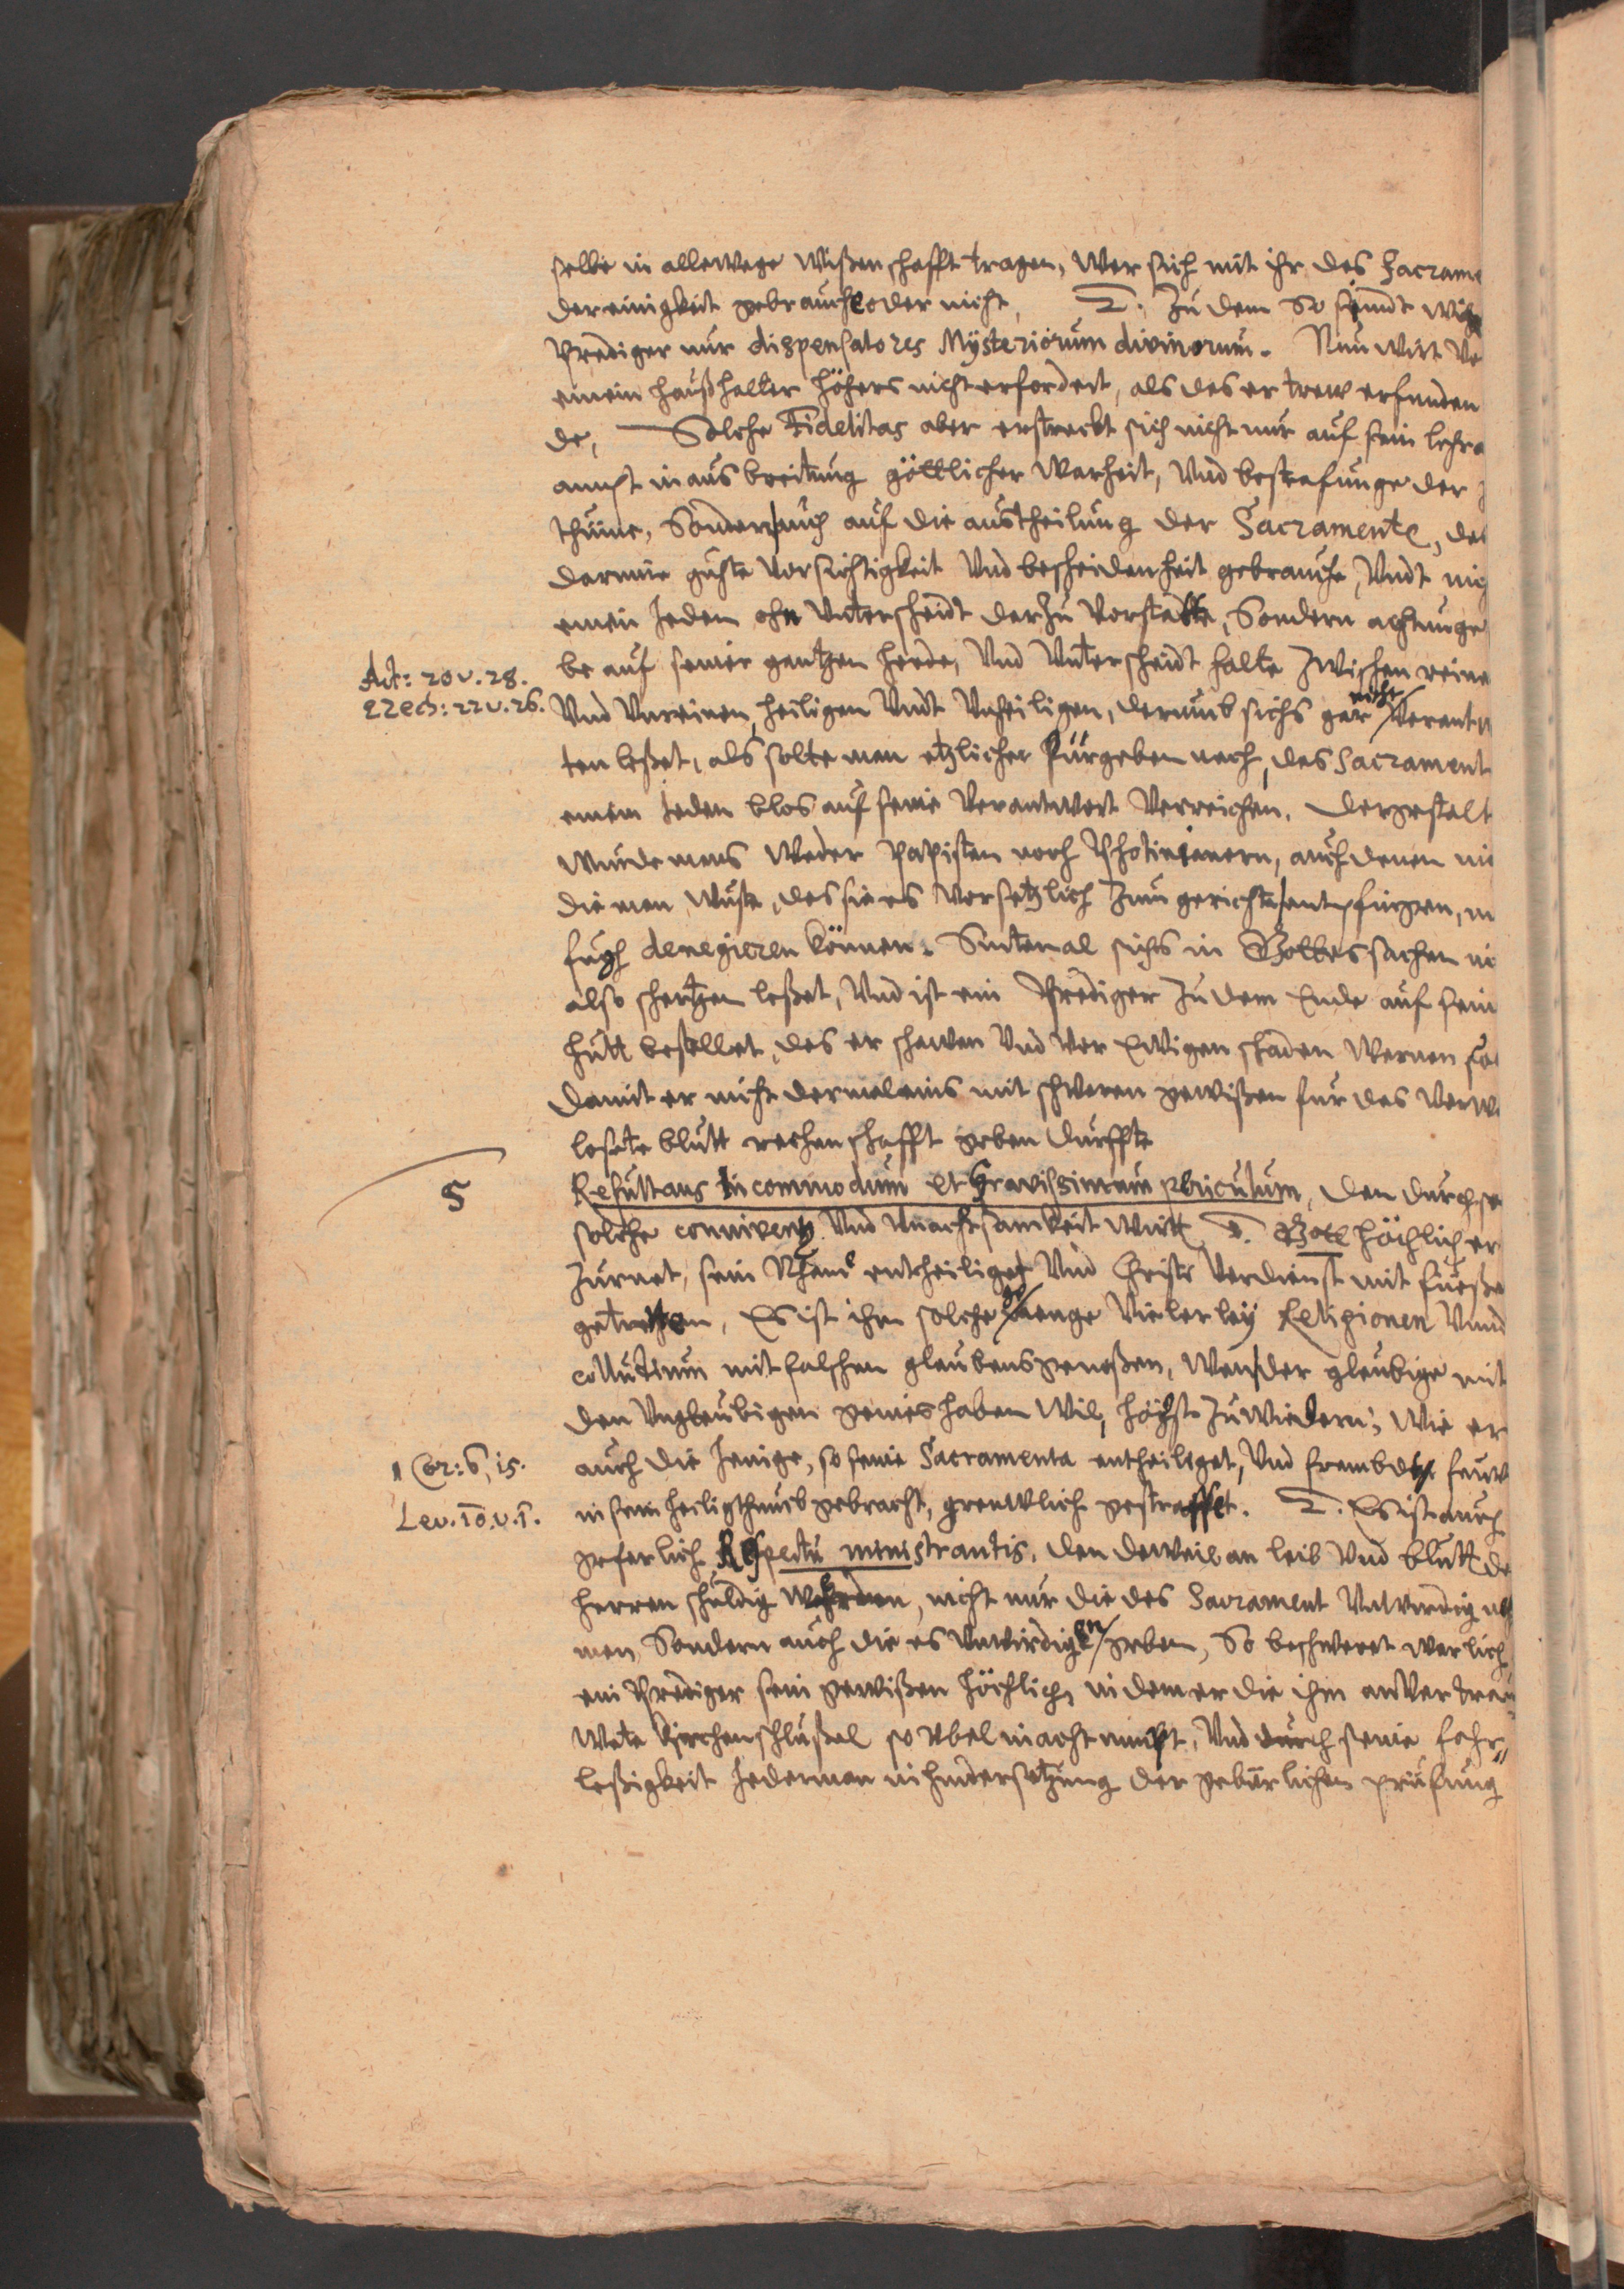 selbe in allewege wißenschafft tragen, Wer sich mit ihr des Sacrame
der einigkeit gebrauche oder nicht, 2. Zu dem So seindt wihr
Prediger nur dispensatores Mysteriorum divinorum. Nuu wirt
einem haußhalter höhers nicht erfordert, als das er trew erfunden
de, Solche Fidelitas aber erstreckt sich nicht nur auf sein lehra
ampt in ausbreitung göttlicher Warheit, Und bestrafunge der
thume, Sondern auch auf die austheilung der Sacramente, das
darinne gutte Vorsichtigkeit Und bescheidenheit gebrauche, Undt nich
einen Jeden ohn Unterscheidt darzu Vorstatte, Sondern achtunge
Act: 20 v. 28.
be auf seine gantzen herde, Und Unterscheidt halte zwischen reine
Ezech: 22 v. 26.
Und Unreinen, heiligen Undt Unheiligen, darumb sichs gar nicht Verantw
ten leßet, als solte man etzlicher fürgeben nach, das Sacrament
einem Jeden blos auf seine Verantwort Verreichen. Dergestalt
wurde mans weder Papisten noch Photinianern, auch denen ni
die man wuste, das sie es Vorsetzlich zum gerichte entpfingen,
fugh denegieren können. Sintemal sichs in Gottes sachen ni
also schertzen leßet, Und ist ein Prediger zu dem Ende auf sein
hutt bestellet, das er schawen Und Vor Ewigen schaden Warnen so
damit er nicht dermaleins mit schweren gewißen fur das Verwa
losete blutt rechenschafft geben durffte
5
Resultans Incommodum et Gravissimum periculum, Den durch
solche conniventz Und Unachtsamkeit wirtt 1. Gott höchlich er
zurnet, sein Nhame entheiliget Und Christi Verdienst mit fueße
getretten, Es ist ihm solche menge Vielerley Religionen Unnd
collution mit falschen glaubensgenoßen, Wan der glaubige mit
den Unglaubigen gemeis haben Wil, höchst zuwiedern, Wie er
2 Cor: 6, 15.
auch die Jenige, so seine Sacramenta entheiliget, Und frembdes feuw
Lev. 10. v. 1.
in sein heiligthumb gebracht, grewlich gestraffet. 2. Es ist auch
geferlich Respectu ministrantis, Den deweil an leib Und blutt de
herren schuldig werden, nicht nur die das Sacrament Unwirdig
men, Sondern auch die es Unwirdigen geben, So beschweret warlich
ein Prediger sein gewißen höchlich, in dem er die ihm anvertrau
wete Kirchenschlußel so Ubel in acht nimpt, Und durch seine fahr
leßigkeit Jederman in hindersetzung der gebürlichen prüfung